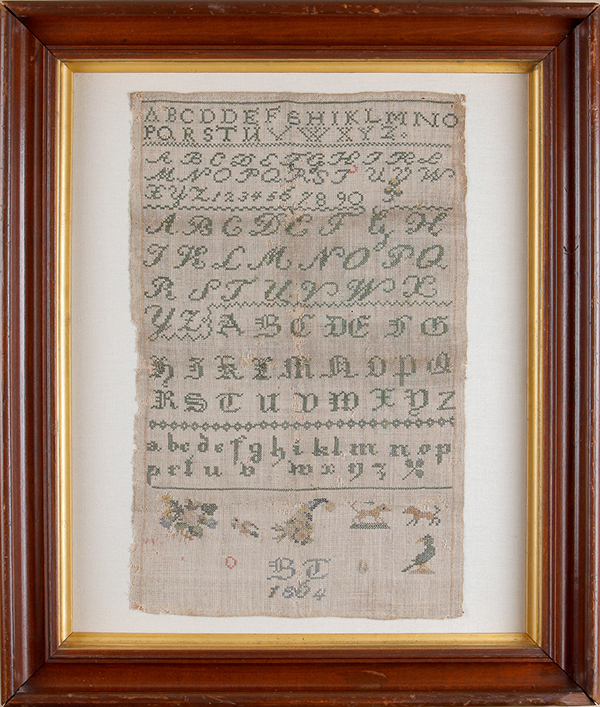 ABCDDEFGHIKLMNO
PQRSTUVWXYZ.
ABCDEFGHIKL
MNOPQRSTUVW
XYZ1234567890
ABCDEFGH
IKLMNOPQ
RSTUVWX
YZABCDEFG
HIKLMNOPQ
RSTUVWXYZ
abcdefghiklmnop
qrstuvwxyz
BT
1864